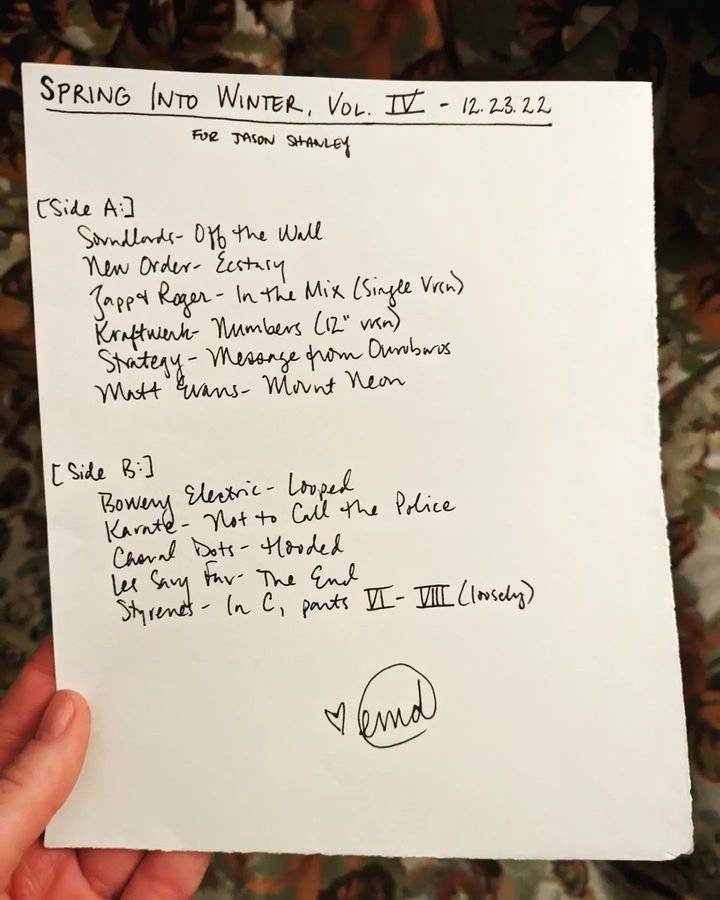 SPRING INTO WINTER, VOL. IV - 12.23.22
FOR JASON SHANLEY
[Side A:]
Soundlords - Off the Wall
New Order - Ecstasy
Zapp & Roger - In the Mix (Single Vrsn)
Kraftwerk - Numbers (12" vrsn)
Strategy - Message from Ouroboros
Matt Evans - Mount Neon
[Side B:]
Bowery Electric - Looped
Karate - Not to Call the Police
Choral Dots - Hooded
Les Savy Fav - The End
Styrenes - In C, parts VI - VIII (loosely)
♥ emd